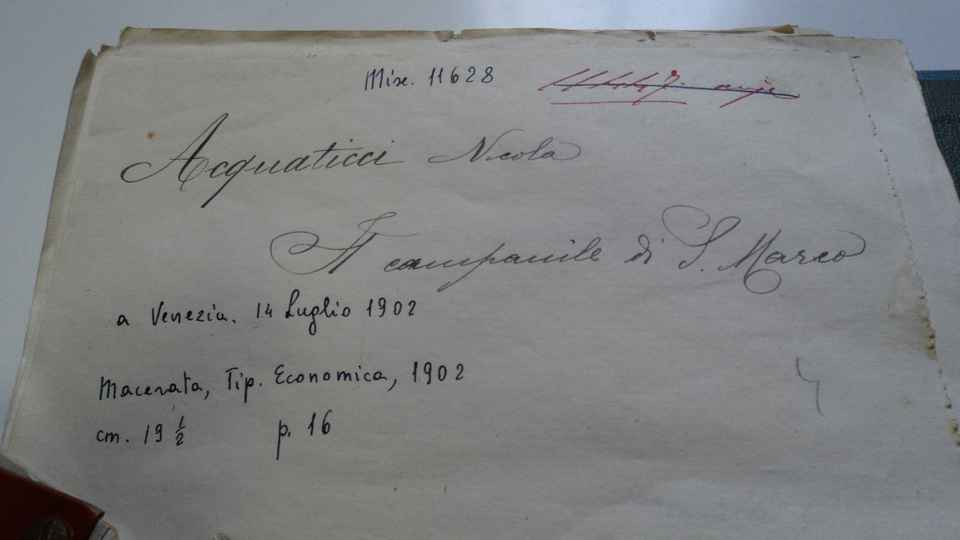 Misc. 11628
Acquaticci Nicola
Il campanile di S. Marco
a Venezia. 14 Luglio 1902
Macerata, Tip. Economica, 1902
cm. 19 1/2 p. 16